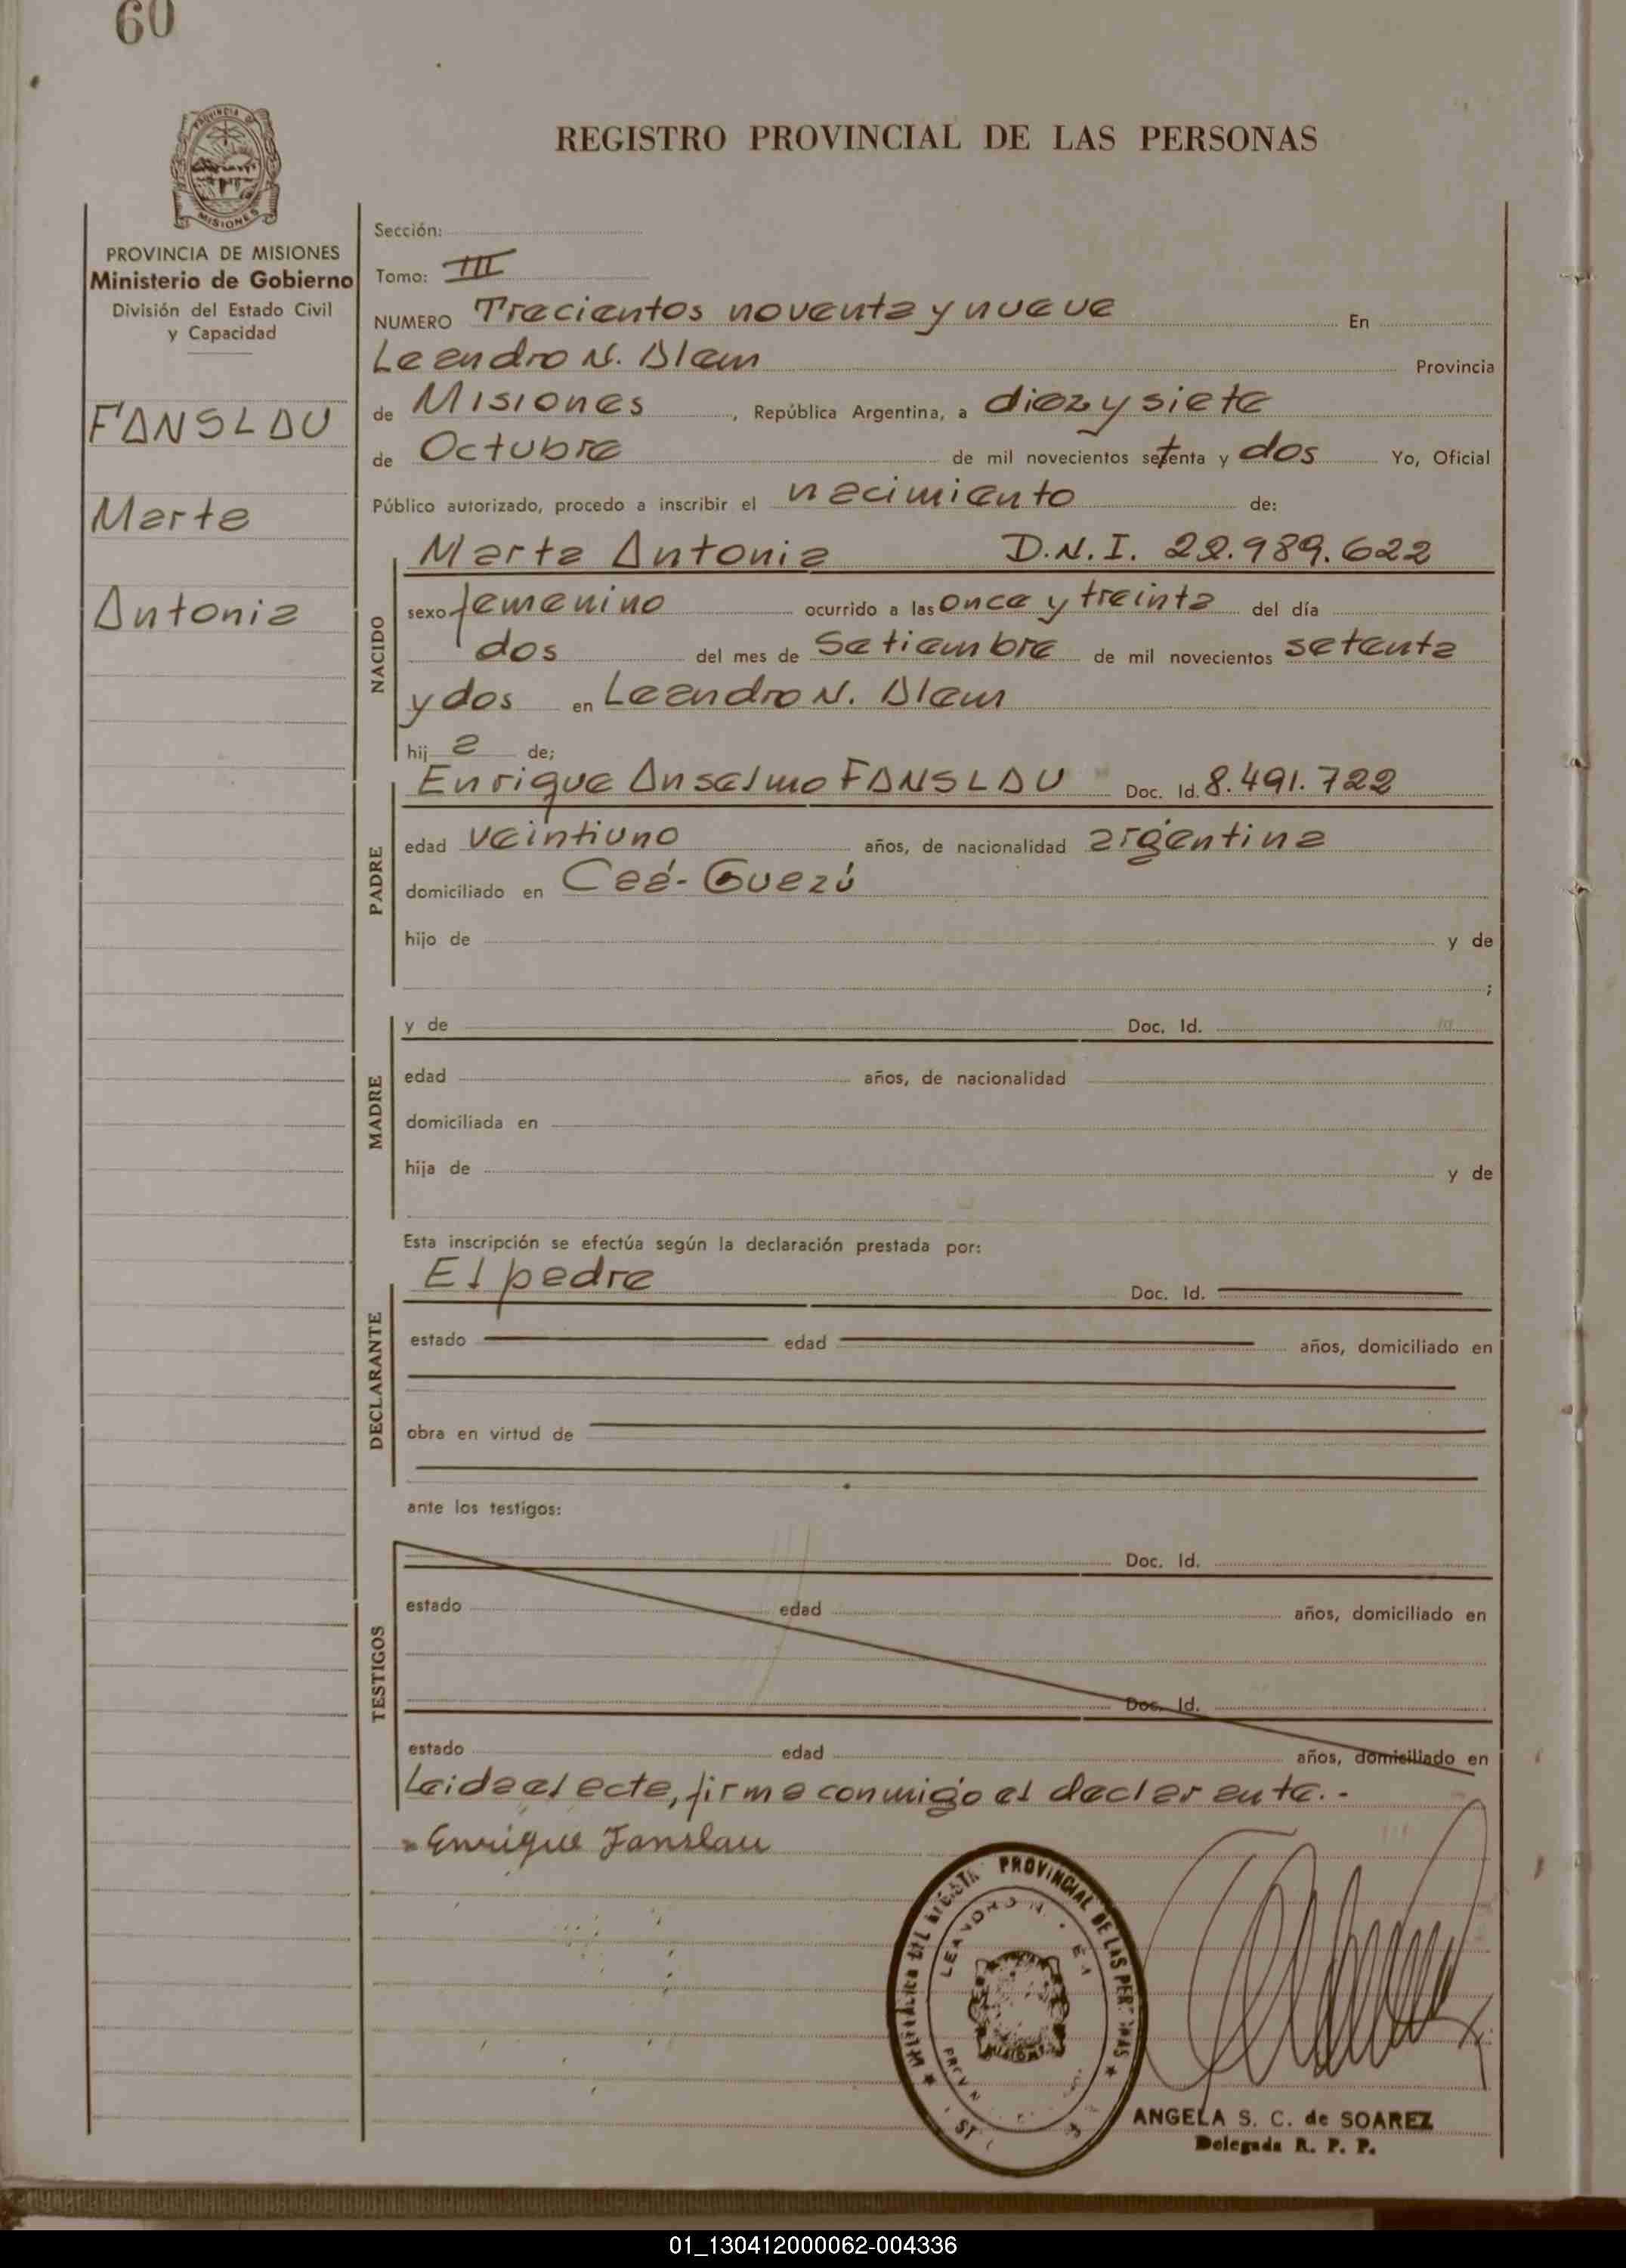 60
PROVINCIA DE
MISIONES
REGISTRO PROVINCIAL DE LAS PERSONAS
PROVINCIA DE MISIONES
Ministerio de Gobierno
División del Estado Civil
y Capacidad
FANSLAU
Marta
Antonia
Sección:
Tomo: III
NUMERO Trecientos noventa y nueve En
Leandro N. Alem Provincia
de Misiones, República Argentina, a diez y siete
de Octubre de mil novecientos setenta y dos Yo, Oficial
Público autorizado, procedo a inscribir el nacimiento de:
NACIDO
Marta Antonia D.N.I. 22.989.622
sexo femenino ocurrido a las once y treinta del día
dos del mes de Setiembre de mil novecientos setenta
y dos en Leandro N. Alem
hij a de;
PADRE
Enrique Anselmo FANSLAU Doc. Id. 8.491.722
edad veintiuno años, de nacionalidad argentina
domiciliado en Caá-Guazú
hijo de y de
;
MADRE
y de Doc. Id.
edad años, de nacionalidad
domiciliada en
hija de y de
Esta inscripción se efectúa según la declaración prestada por:
DECLARANTE
El padre Doc. Id.
estado edad años, domiciliado en
obra en virtud de
ante los testigos:
TESTIGOS
Doc. Id.
estado edad años, domiciliado en
Doc. Id.
estado edad años, domiciliado en
Leida el acta, firma conmigo el declarante.-
Enrique Fanslau
PROVINCIAL DE LAS
LEANDRO N.
MISIONES
ANGELA S. C. de SOAREZ
Delegada R. P. P.
01_130412000062-004336